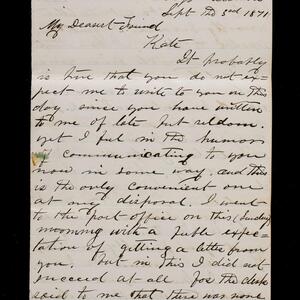 Sept the 3rd 1871
My Dearest Friend
Kate
It probably
is true that you do not ex-
pect me to write to you on this
day since you have written
to me of late but seldom.
yet I feel in the humor
of communicating to you
now in some way, and this
is the only convenient one
at my disposal. I went
to the post office on this (Sunday)
morning with a full expec-
tation of getting a letter from
you. but in this I did not
succeed at all for the clerk
said to me that there was none